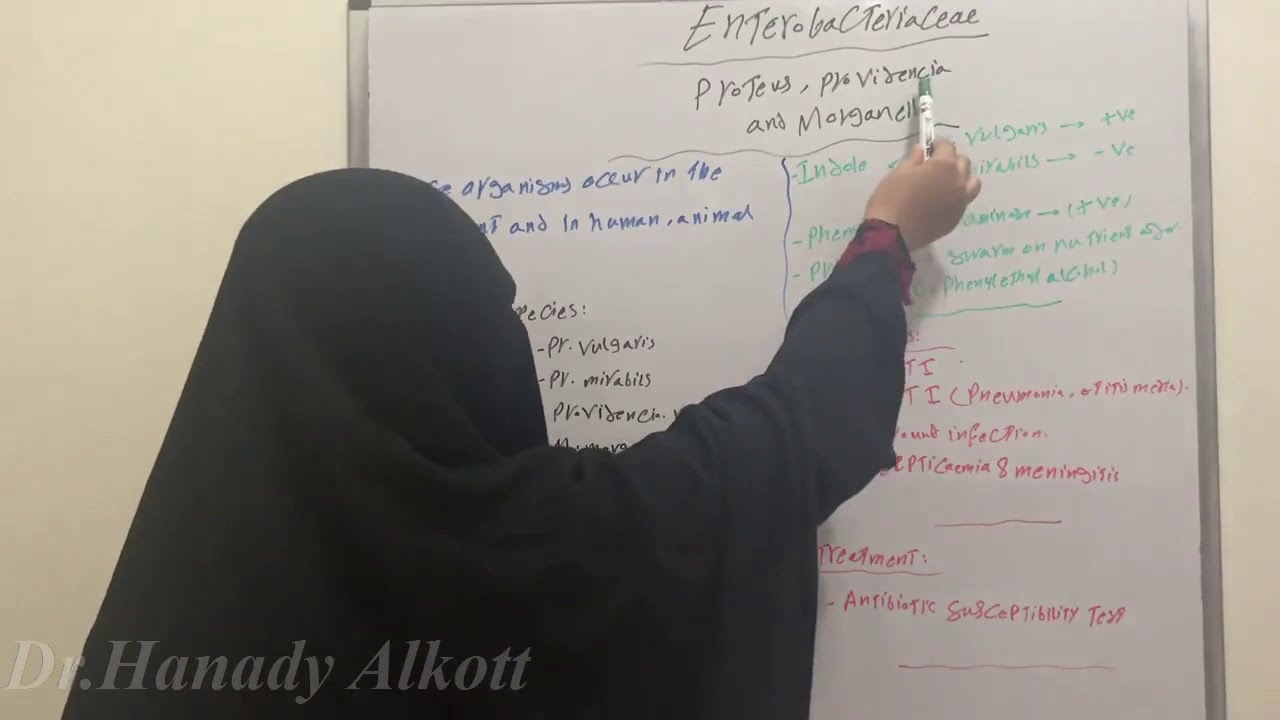 Enterobacteriaceae
Proteus, Providencia
and Morganell
organisms occur in the
and in human, animal
pecies:
-Pr. vulgaris
-Pr. mirabils
Providencia.
-Indole
vulgaris → +ve
mirabils → -ve
- Phen
aminase → (+ve)
- Pr
swarm on nutrient agar
Phenylethyl alcohol)
TI
TI (Pneumonia, otitis media).
ound infection.
epticaemia & meningitis
Treatment:
- Antibiotic susceptibility Test
Dr.Hanady Alkott